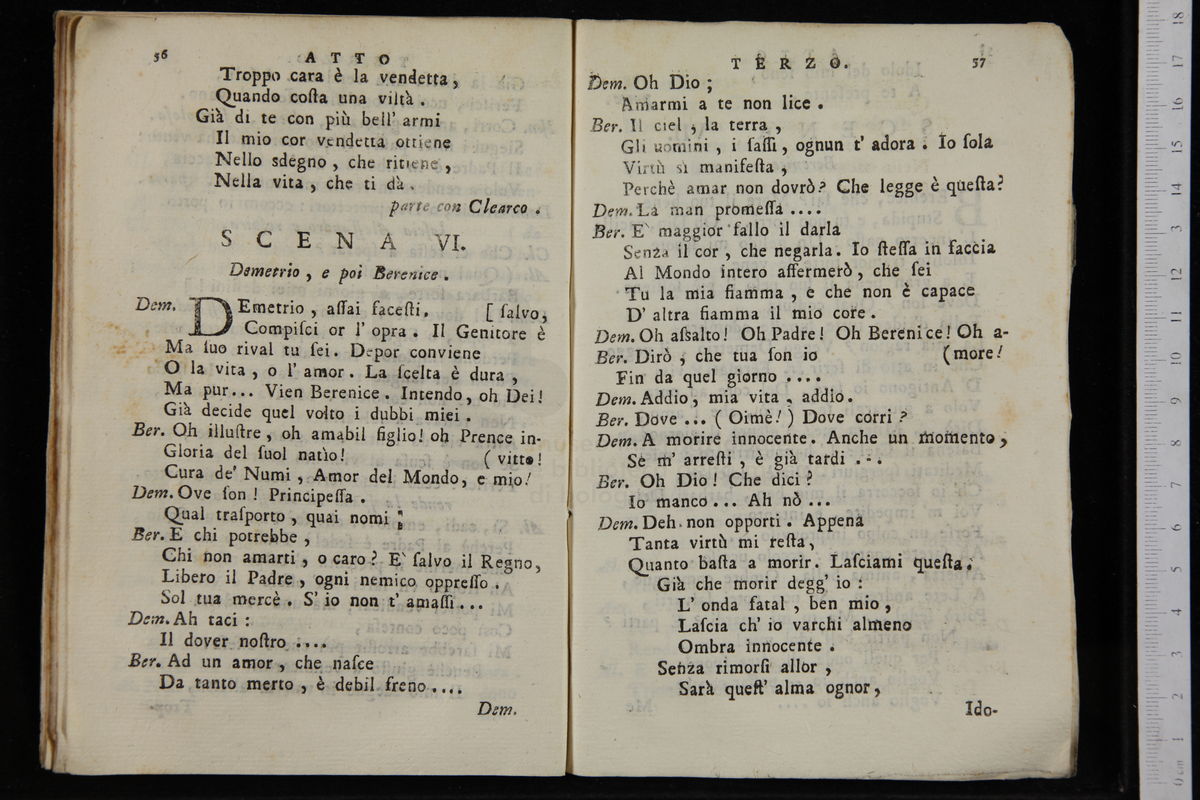 56
ATTO
Troppo cara è la vendetta,
Quando coſta una viltà.
Già di te con più bell' armi
Il mio cor vendetta ottiene
Nello sdegno, che ritiene,
Nella vita, che ti dà.
parte con Clearco.
SCENA VI.
Demetrio, e poi Berenice.
Dem. DEmetrio, aſſai faceſti. [ ſalvo,
Compiſci or l' opra. Il Genitore è
Ma ſuo rival tu ſei. Depor conviene
O la vita, o l' amor. La ſcelta è dura,
Ma pur... Vien Berenice. Intendo, oh Dei!
Già decide quel volto i dubbi miei.
Ber. Oh illuſtre, oh amabil figlio! oh Prence in-
Gloria del ſuol natìo! ( vitto!
Cura de' Numi, Amor del Mondo, e mio!
Dem. Ove ſon! Principeſſa.
Qual traſporto, quai nomi
Ber. E chi potrebbe,
Chi non amarti, o caro? E' ſalvo il Regno,
Libero il Padre, ogni nemico oppreſſo.
Sol tua mercè. S' io non t' amaſſi...
Dem. Ah taci:
Il dover noſtro ....
Ber. Ad un amor, che naſce
Da tanto merto, è debil freno....
Dem.
TERZO.
57
Dem. Oh Dio;
Amarmi a te non lice.
Ber. Il ciel, la terra,
Gli uomini, i ſaſſi, ognun t' adora. Io ſola
Virtù sì manifeſta,
Perchè amar non dovrò? Che legge è queſta?
Dem. La man promeſſa ....
Ber. E' maggior fallo il darla
Senza il cor, che negarla. Io ſteſſa in faccia
Al Mondo intero affermerò, che ſei
Tu la mia fiamma, e che non è capace
D' altra fiamma il mio core.
Dem. Oh aſsalto! Oh Padre! Oh Berenice! Oh a-
Ber. Dirò, che tua ſon io (more!
Fin da quel giorno ....
Dem. Addio, mia vita, addio.
Ber. Dove ... ( Oimè! ) Dove corri?
Dem. A morire innocente. Anche un momento,
Se m' arreſti, è già tardi ...
Ber. Oh Dio! Che dici?
Io manco... Ah nò...
Dem. Deh non opporti. Appena
Tanta virtù mi reſta,
Quanto baſta a morir. Laſciami queſta.
Già che morir degg' io:
L' onda fatal, ben mio,
Laſcia ch' io varchi almeno
Ombra innocente.
Senza rimorſi allor,
Sarà queſt' alma ognor,
Ido-